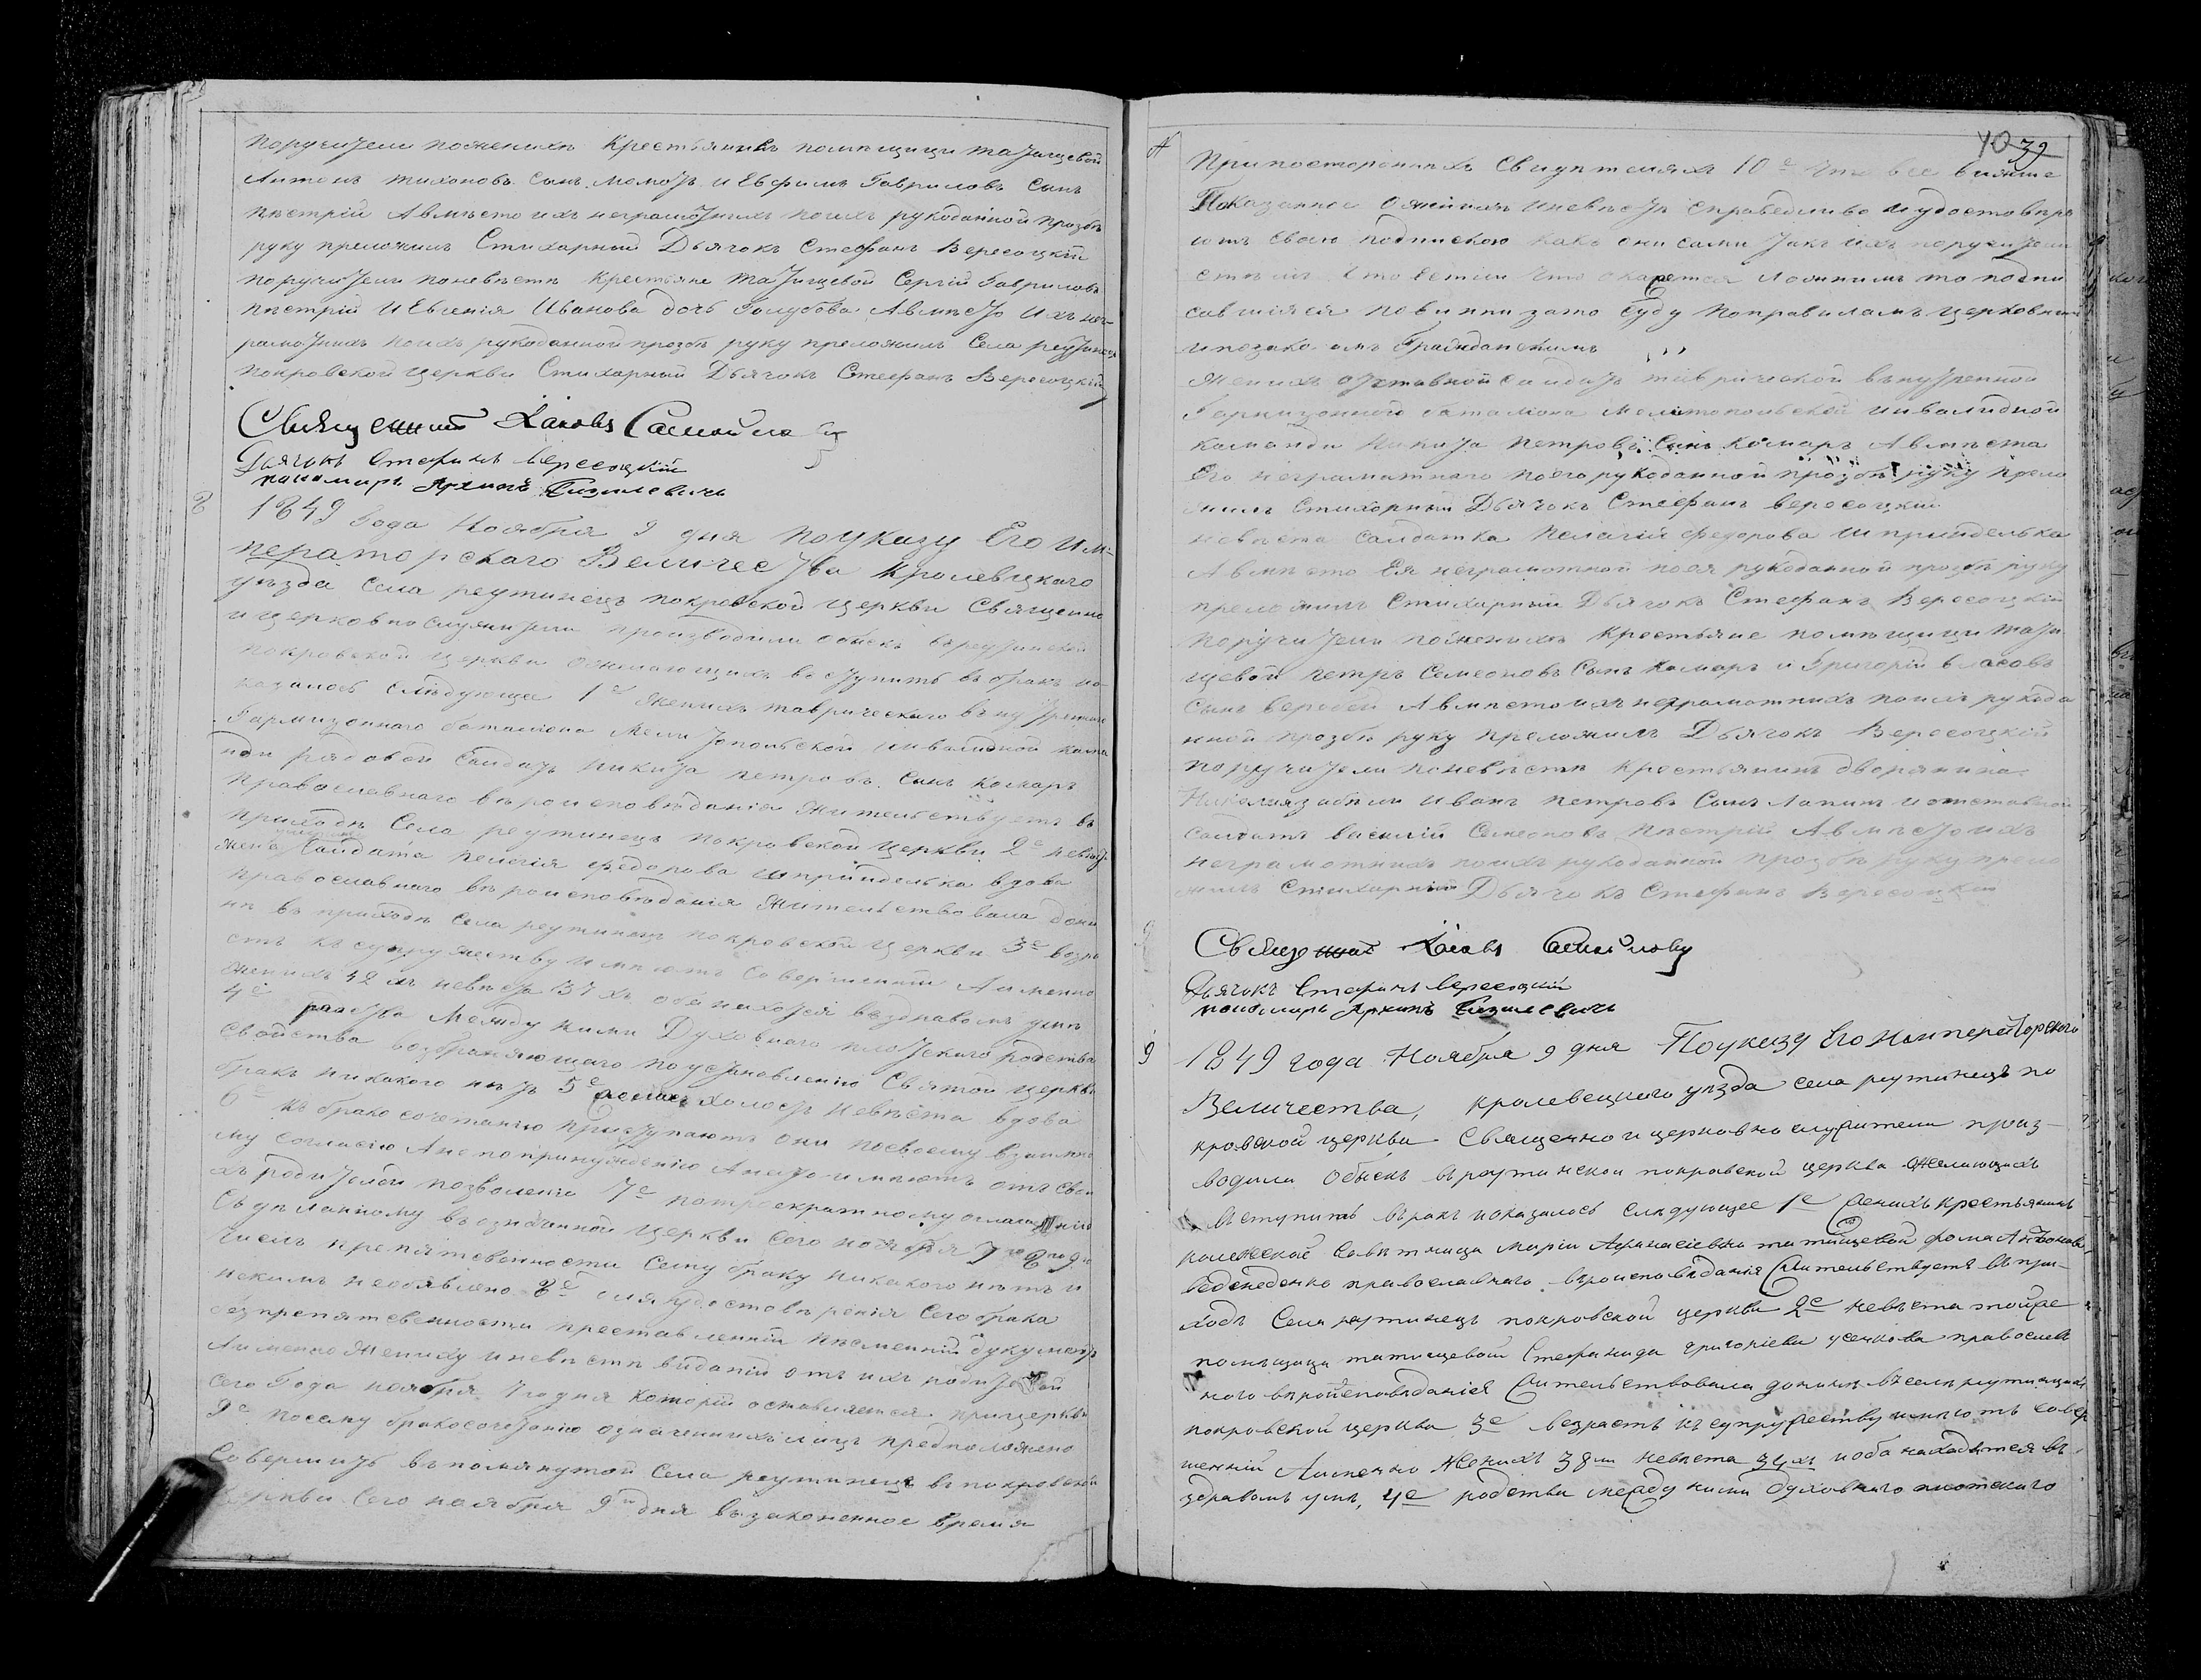 поручители пожениху Крестьянинъ помѣщици татищевой
Антонъ тихоновъ сынъ момотъ и Евфимъ Гавриловъ сынъ
пѣстрій Авмѣсто ихъ неграмотнихъ поихъ рукоданной прозбѣ
руку преложилъ Стихарный Дьячокъ Стефанъ Вересоцкій
поручители поневѣстѣ крестьяне татищевой Сергій Гавриловъ
пѣстрій И Евгенія Иванова дочь Голубова Авмѣсто Ихъ нег-
рамотнихъ поихъ рукоданной прозбѣ руку преложилъ Села реутинецъ
покровской церкви Стихарный Дьячокъ Стефанъ Вересоцкій
Священникъ Іаковъ Самойловъ
Дьячокъ Стефанъ Вересоцкій
пономарь Архипъ
8
1849 Года Ноября 9 дня Поуказу Его Им-
ператорскаго Величества Кролевецкаго
уѣзда Села реутинецъ покровской церкви Священно
и церковно служители производили обыскъ въреутинской
покровской церкви ожелающихъ вступить въ бракъ по-
казалось Слѣдующее 1е Женихъ таврическаго внутренни
Гарнизонного баталіона Мелитопольской инвалидной кама
нди рядовой Салдатъ Никита петровъ сынъ комаръ
православнаго вѣроисповѣданія Жительствуетъ въ
приходѣ Села реутинецъ покровской церкви 2е невѣста
жена Салдата пелагія федорова шпринделька вдова
православнаго вѣроисповѣданія Жительствовала дони
нѣ въ приходѣ Села реутинецъ покровской церкви 3е возра
стъ къ супружеству имѣютъ Совершенній Аименно
женихъ 42 хъ невѣста 37 хъ оба находятся въздравомъ умѣ
4е родства Между ними Духовнаго плотскаго родства
Свойства возбраняющаго поустановленію Святой церкви
бракъ никакого нѣтъ 5е женихъ холостъ Невѣста вдова
6е къ бракосочетанію приступаютъ они посвоему взаимно
му согласію Анепопринужденію Ането имѣютъ отъ свои
хъ родителей позволеніе 7е потроекратному оглашенію
Сдѣланному въозначенной церкви Сего ноября 7го 8 9го
числъ препятсвенности Сему браку никакого нѣтъ и
некимъ необявлено 8е для удостовѣренія Сего брака
безпрепятсвенности преставленній писменній дукументъ
Аименно Жениху иневѣстѣ виданій отъ ихъ родителей
Сего Года ноября 7 го дня который оставляется прицеркви
9е посему бракосочетанію означеннихъ лицъ предположено
Совершить въпомянутой Села реутинецъ въ покровской
церкви Сего ноября 9го дня възаконенное время
40 39
Припостороннихъ Свидѣтеляхъ 10е Что все вишше
Показанное ожених​ѣ иневѣстѣ справедливо иудостовѣря
ютъ своею подпискою какъ они сами такъ ихъ поручители
стѣмъ Что естьли Что окажется ложнимъ то подпи
савшіяся повинни зато суду поправиламъ церковнимъ
ипозаконамъ Гражданскимъ
Женихъ отставной Салдатъ таврической внутренной
Гарнизонного баталіона Мелитопольской инвалидной
каманди Никита петровъ Синъ Комаръ Авмѣста
Его неграматнаго поегорукоданной прозбѣ руку прело
жилъ Стихорный Дьячокъ Стефанъ Вересоцкій
невѣста салдатка пелагія федорова Шпринделька
Авмѣсто Ея неграмотной поея рукоданной прозбѣ руку
преложилъ Стихарный Дьячокъ Стефанъ Вересоцкій
поручители пожениху Крестьяне помѣщици тати
щевой петръ Семеоновъ Сынъ комаръ и Григорій Власовъ
Сынъ Воробей Авмѣсто ихъ неграмотнихъ поихъ рукода
нной прозбѣ руку преложилъ Дьячокъ Вересоцкій
поручители поневѣстѣ крестьянинъ дворянина
Иванъ петровъ Сынъ Лапинъ и отставной
Салдатъ василій Семеоновъ пѣстрій Авмѣсто ихъ
неграмотнихъ поихъ рукоданной прозбѣ руку прело
жилъ Стихарный Дьячокъ Стефанъ Вересоцкій
Священникъ Іаковъ Самойловъ
Дьячокъ Стефанъ Вересоцкій
пономарь Архипъ
9
1849 года Ноября 9 дня Поуказу Его Императорского
Величества, кролевецкого уѣзда села реутинецъ по
кровской церкви Священно и церковно служители произ-
водили обыскъ въреутинской покровской церкви ожелающихъ
вступить въбракъ ипоказалось следующее 1е Женихъ крестьянинъ
колежской Совѣтницы Маріи Афанасіевни татищевой фома Антонов
православнаго вѣроисповѣданія Жительствуетъ въ при-
ходѣ Села реутинецъ покровской церкви 2е невѣста тойже
помѣщици татищевой Стефанида григоріева усенкова православ
ного вѣройсповѣданія Жительствовала донинѣ въселѣ реутинцахъ
покровской церкви 3е возрастъ къ супружеству имѣютъ совер
шенній Аименно Женихъ 38ми невѣста 34хъ иоба находятся въ
здравомъ умѣ, 4е родства между ними духовнаго плотскаго